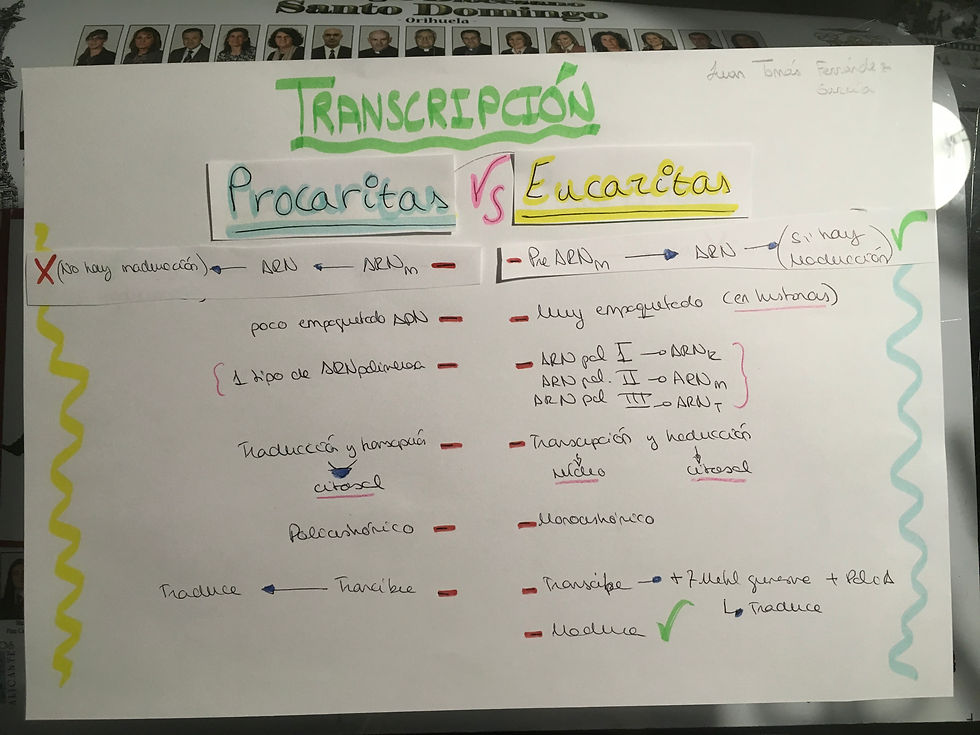 Santo Domingo
- Orihuela -
Juan Tomás Fernández
García
TRANSCRIPCIÓN
Procaritas VS Eucaritas
X (No hay maduración) ← ARN ← ARNm - - Pre ARNm → ARN → (Si hay maduración) ✓
poco empaquetado ADN - - Muy empaquetado (en histonas)
{ 1 tipo de ARNpolimerasa - - ARN pol I → ARNR
ARN pol. II → ARNm
ARN pol III → ARNT }
Traducción y transcripción - - Transcipción y traducción
citosol núcleo citosol
Policistrónico - - Monocistrónico
Traduce ← Transcibe - - Transcibe → + 7 Metil guanine + Poli A
↳ Traduce
- Madura ✓
ALICANTE